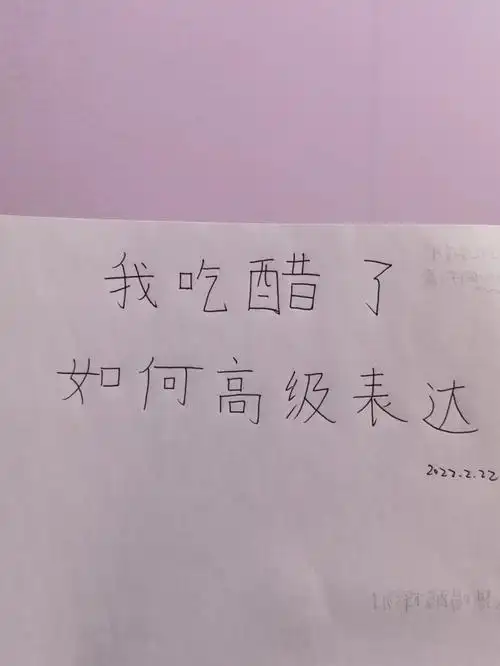 我吃醋了
如何高级表达
2022.2.22